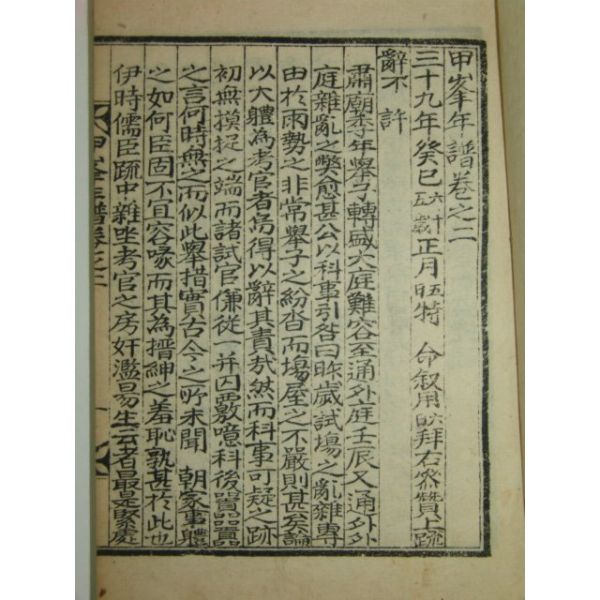 甲峯年譜卷之二
三十九年癸巳六十五歲正月旺特 命叙用旼拜右參贊上疏
辭不 許
肅廟季年擧子轉盛大庭難容至通外庭壬辰又通外外
庭雜亂之弊愈甚公以科事引咎曰昨歲試場之亂雜專
由於雨勢之非常擧子之紛沓而塲屋之不嚴則甚矣論
以大體為考官者焉得以辭其責㦲然而科事可疑之跡
初無摸捉之端而諸試官傔從一并囚覈噫科後嘂嘂
之言何時無之而似此擧措實古今之所未聞 朝家事軆
之如何臣固不宜容喙而其為搢紳之羞恥孰甚於此也
伊時儒臣疏中雜坐考官之房奸濫易生云者最是緊處
甲峯年譜卷之二